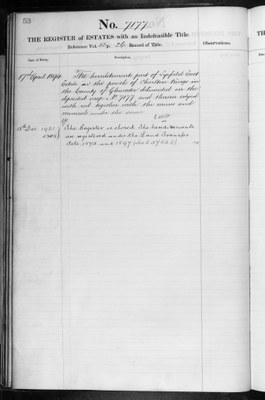 53
No. 7177
THE REGISTER of ESTATES with an Indefeasible Title.
Reference Vol. p. 26. Record of Title.
Observations.
Date of Entry.
Description.
17th April 1894
The hereditaments part of Estate in the parish of Charlton Kings in
the County of Gloucester delineated on the
deposited map No. 7177 and therein edged
with red together with the mines and
minerals under the same
15th Dec. 1921
The Register is closed. The hereditaments
are registered under the Land Transfer
Acts, 1875 and 1897